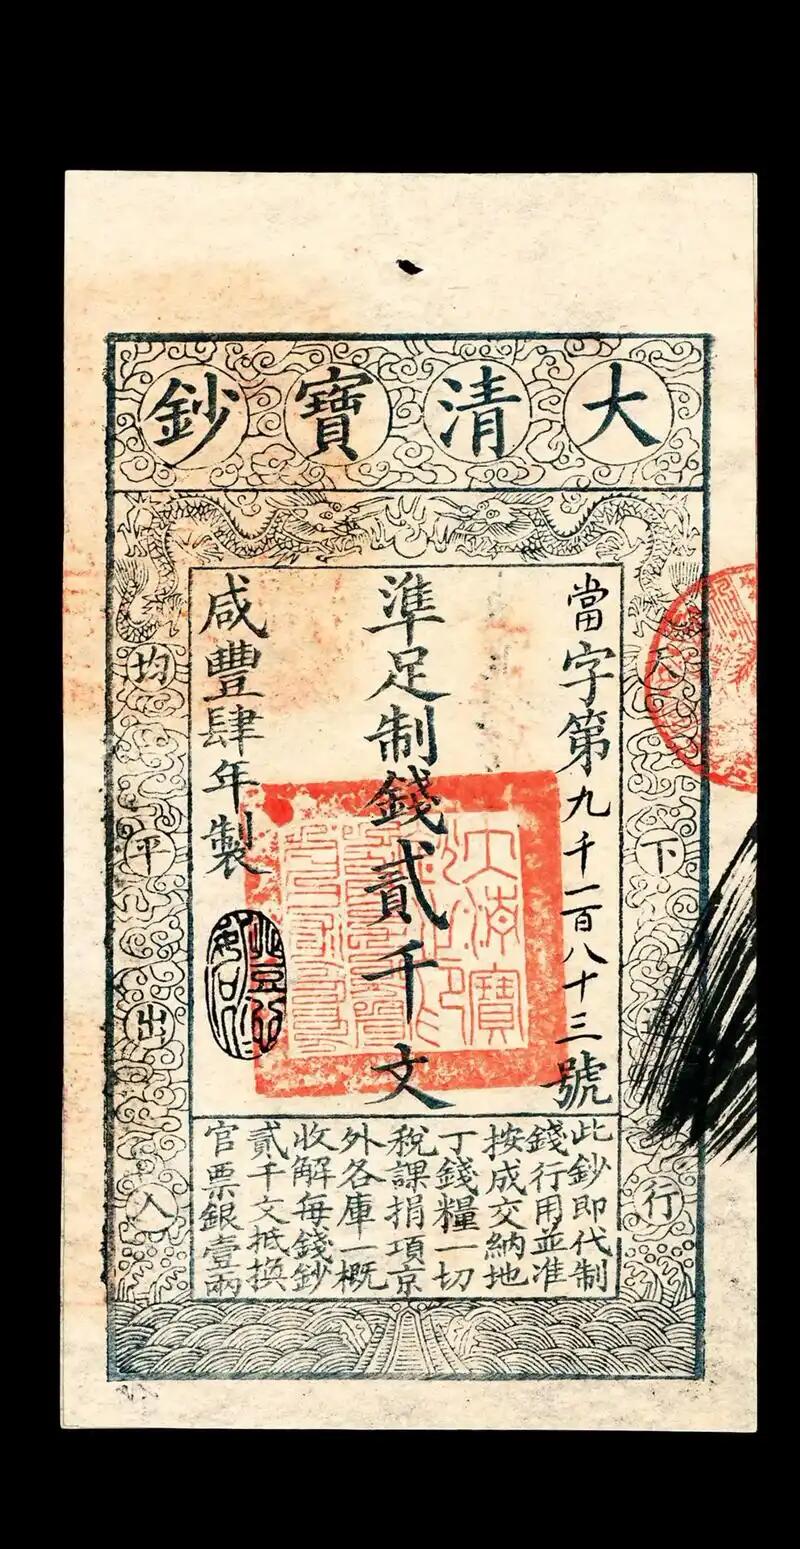 大清寶鈔
當字第九千一百八十三號
準足制錢貳千文
咸豐肆年製
天下通行
均平出入
此鈔即代制
錢行用並准
按成交納地
丁錢糧一切
稅課捐項京
外各庫一概
收解每錢鈔
貳千文抵換
官票銀壹兩